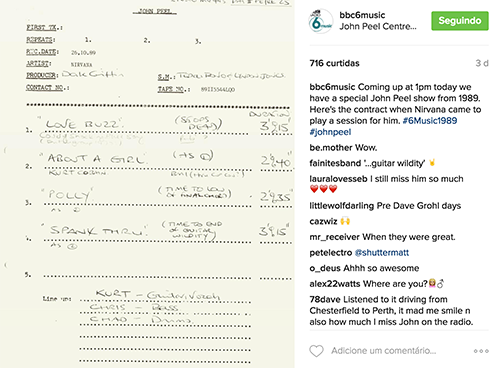 JOHN PEEL
FIRST TX.:
REPEATS: 1. 2. 3.
REC.DATE: 26.10.89
ARTIST: NIRVANA
PRODUCER: Dale Griffin S.M.:
CONTACT NO.: TAPE NO.:
DURATION
1. 'LOVE BUZZ' (STOPS DEAD) 3'15"
2. 'ABOUT A GIRL' (AS ①) 2'40"
KURT COBAIN
3. 'POLLY' (TIME TO END OF 2'35"
AS ②
4. 'SPANK THRU' (TIME TO END OF GUITAR WILDITY) 3'15"
AS ②
5.
Line up: KURT - Guitar/Vocals
CHRIS - Bass
CHAD - Drums
bbc6music
John Peel Centre...
Seguindo
716 curtidas
3 d
bbc6music Coming up at 1pm today we
have a special John Peel show from 1989.
Here's the contract when Nirvana came to
play a session for him. #6Music1989
#johnpeel
be.mother Wow.
fainitesband '...guitar wildity'
lauralovesseb I still miss him so much
❤❤❤
littlewolfdarling Pre Dave Grohl days
cazwiz 🙌
mr_receiver When they were great.
petelectro @shuttermatt
o_deus Ahhh so awesome
alex22watts Where are you?
78dave Listened to it driving from
Chesterfield to Perth, it mad me smile n
also how much I miss John on the radio.
Adicione um comentário...